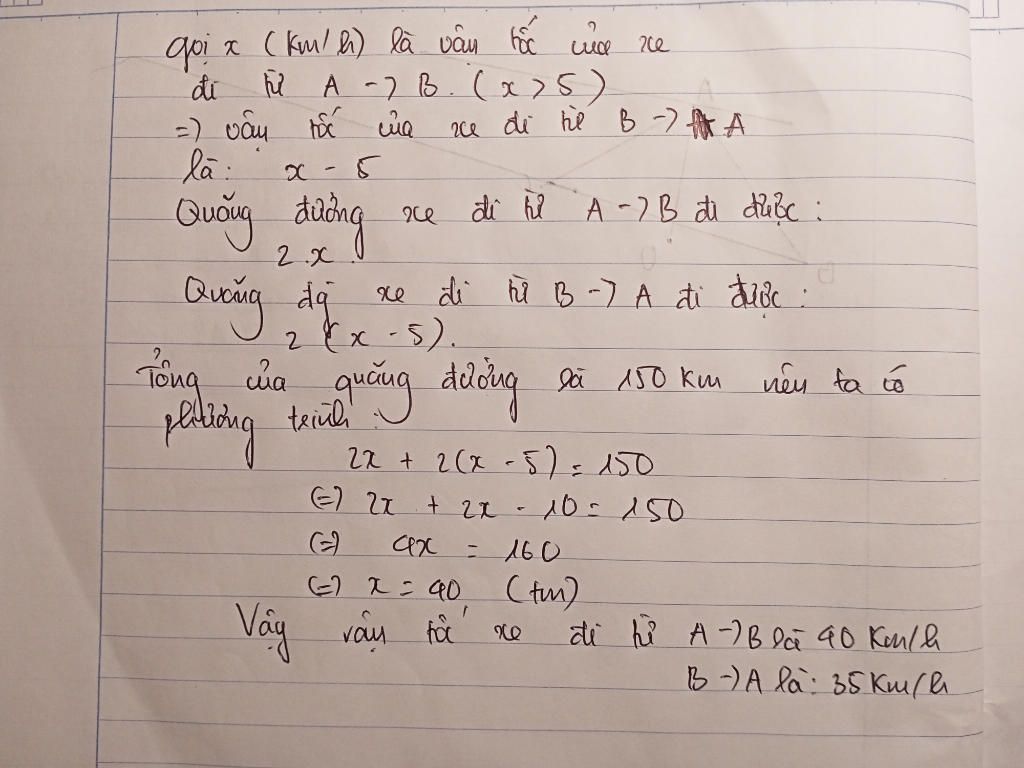 gọi x (km/h) là vân tốc của xe
đi từ A -> B. (x > 5)
=> vận tốc của xe đi từ B -> A
là: x - 5
Quãng đường xe đi từ A -> B đi được:
2.x
Quãng đg xe đi từ B -> A đi được:
2 (x - 5).
Tổng của quãng đường là 150 Km nên ta có
phương trình:
2x + 2(x - 5) = 150
(=) 2x + 2x - 10 = 150
(=) 4x = 160
(=) x = 40 (tm)
Vậy vận tốc xe đi từ A -> B là 40 Km/h
B -> A là: 35 Km/h